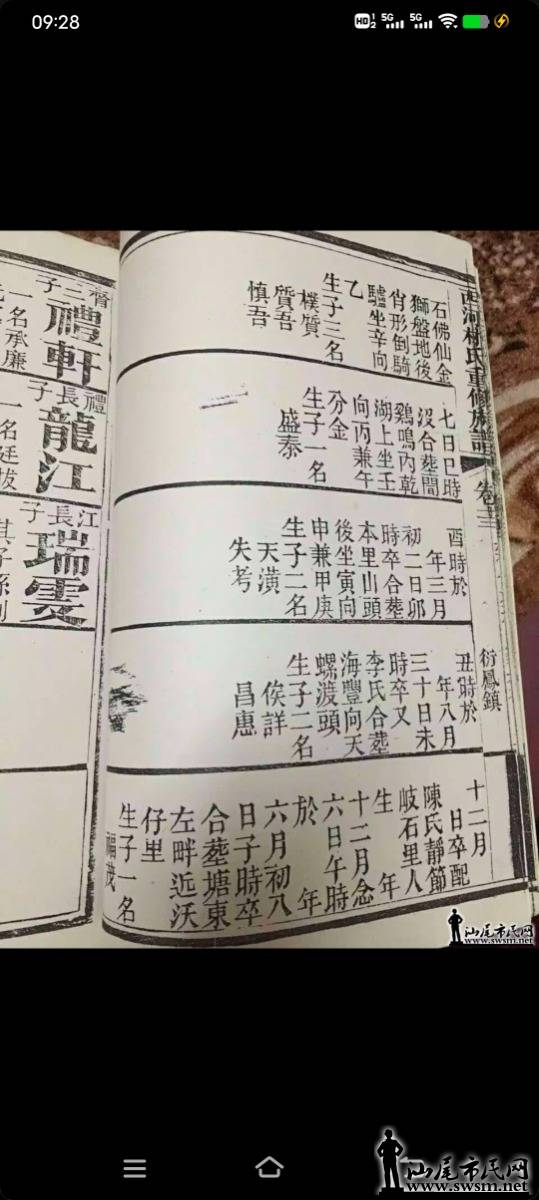 09:28
西河林氏重修族譜
卷三
衍鳳鎮
石佛仙金
獅盤地後
肖形倒騎
驢坐辛向
乙
生子三名
樸質
質吾
慎吾
七日巳時
沒合葬間
鷄鳴內乾
湖上坐壬
向丙兼午
分金
生子一名
盛泰
酉時於
年三月
初二日卯
時卒合葬
本里山頭
後坐寅向
申兼甲庚
生子二名
天潢
失考
丑時於
年八月
三十日未
時卒又
李氏合葬
海豐向天
螺渡頭
生子二名
俟詳
昌惠
十二月
日卒配
陳氏靜節
岐石里人
生 年
十二月念
六日午時
於 年
六月初八
日子時卒
合葬塘東
左畔近沃
仔里
生子一名
福茂
齊二子
禮軒
一名承廉
禮長子
龍江
一名廷拔
江長子
瑞雯
其子孫別
汕尾市民网
www.swsm.net
汕尾市民网
www.swsm.net